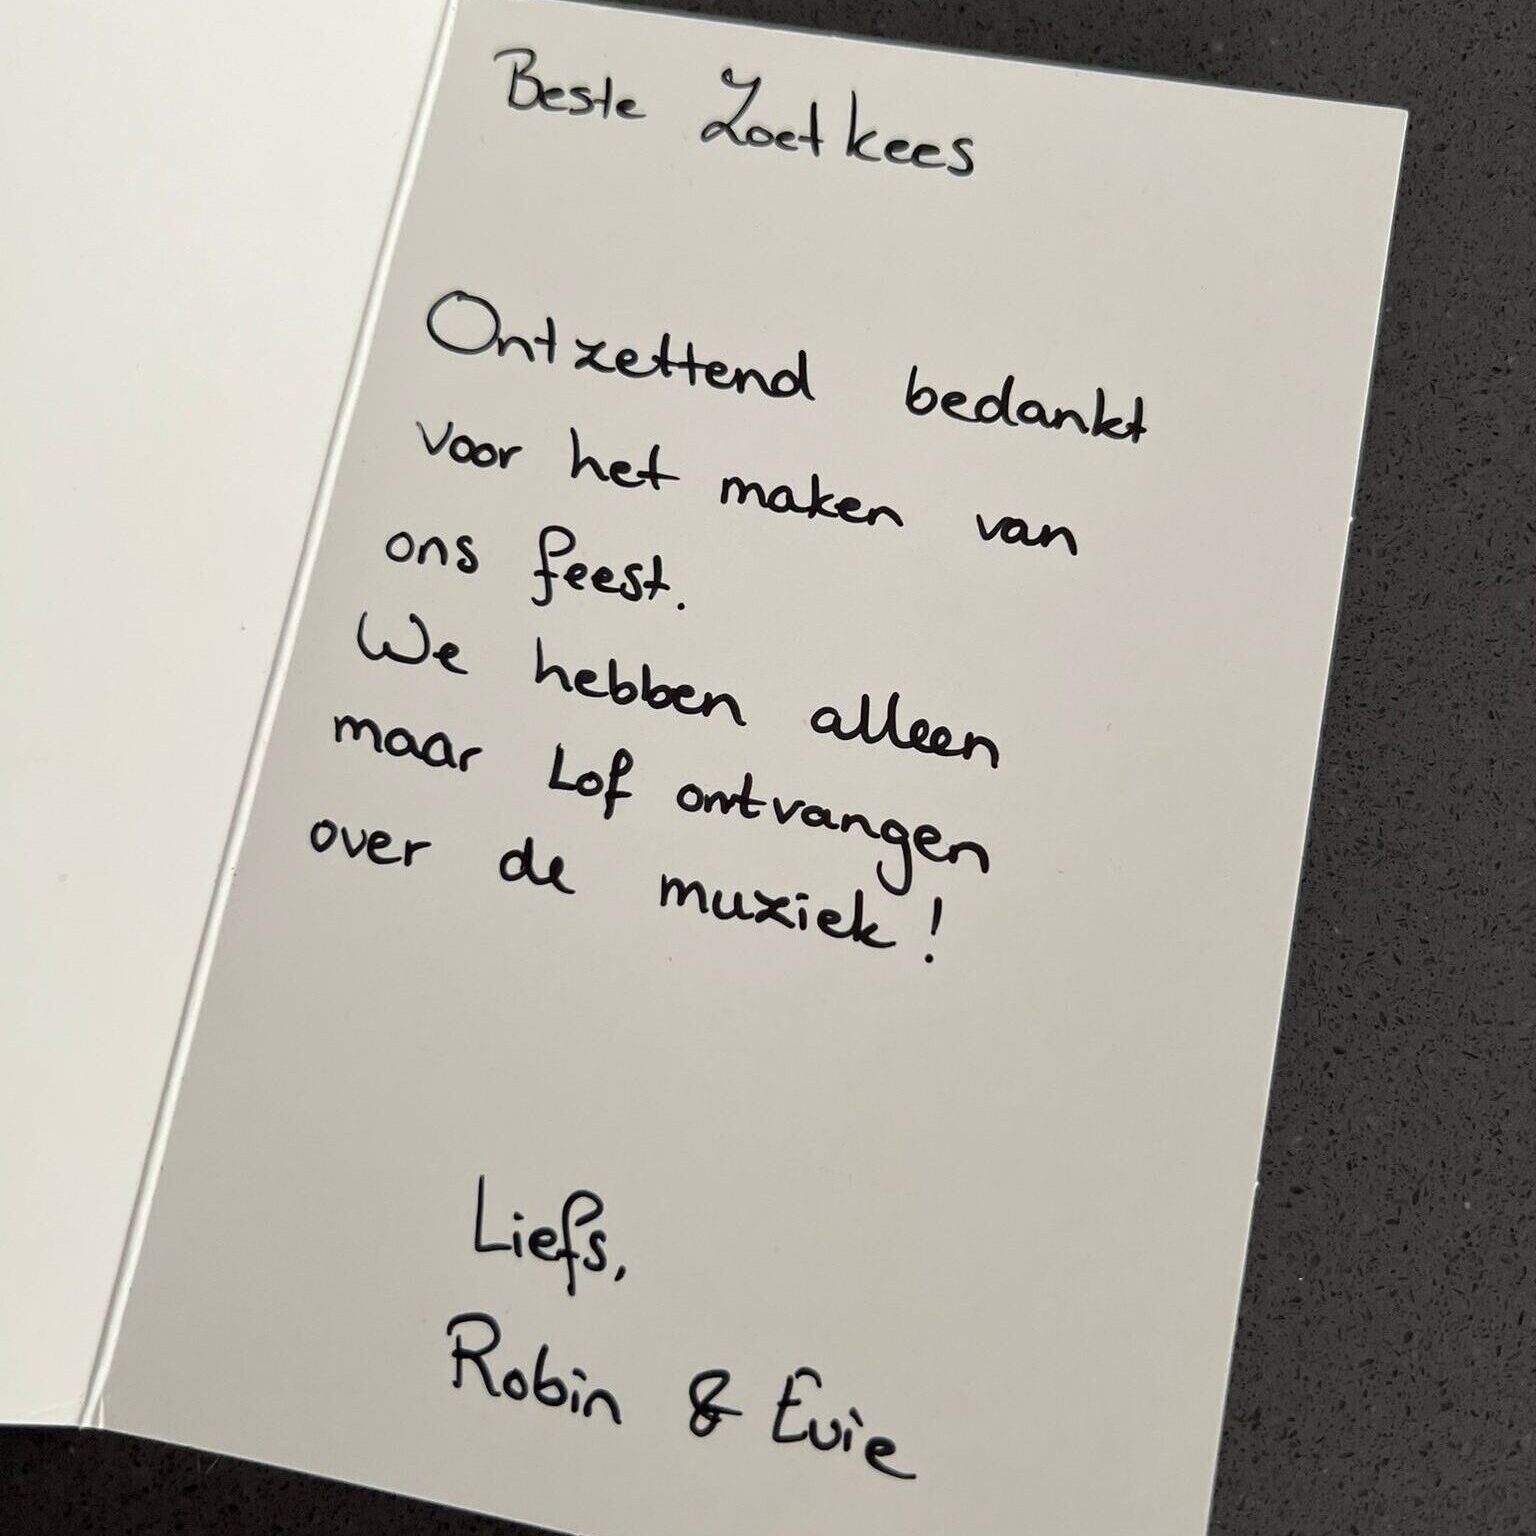 Beste Zoetkees
Ontzettend bedankt
voor het maken van
ons feest.
We hebben alleen
maar Lof ontvangen
over de muziek!
Liefs,
Robin & Evie